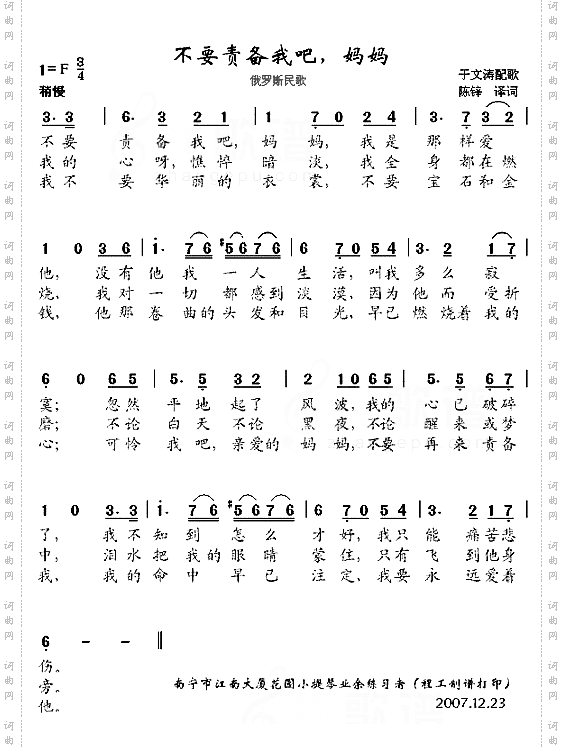 不要责备我吧，妈妈
1=F 3/4
俄罗斯民歌
于文涛配歌
稍慢
陈锌 译词
3· 3 | 6· 3 2 1 | 7 0 5 3 | 3· 7 3 2 |
不要 责备我吧，妈妈，我是那样爱
我的心呀，憔悴暗淡，我全身都在燃
我不要华丽的衣裳，不要宝石和金
1 0 3 6 | i· 7 6 | #5 6 7 6 | 6 7 0 5 4 | 3· 2 1 7 |
他，没有他我一人生活，叫我多么寂
烧，我对一切都感到淡漠，因为他而受折
钱，他那卷曲的头发和目光，早已燃烧着我的
6 0 6 5 | 5· 5 3 2 | 2 1 0 6 5 | 5· 5 6 7 |
寞；忽然平地起了风波，我的心已破碎
磨；不论白天不论黑夜，不论醒来或梦
心；可怜我吧，亲爱的妈妈，不要再来责备
1 0 3· 3 | i· 7 6 | #5 6 7 6 | 6 7 0 5 4 | 3· 2 1 7 |
了，我不知到怎么才好，我只能痛苦悲
中，泪水把我的眼睛蒙住，只有飞到他身
我，我的命中早已注定，我要永远爱着
6 - - ‖
伤。
旁。
他。
南宁市江南大厦花园小提琴业余练习者（程工制谱打印）
2007.12.23
词曲网